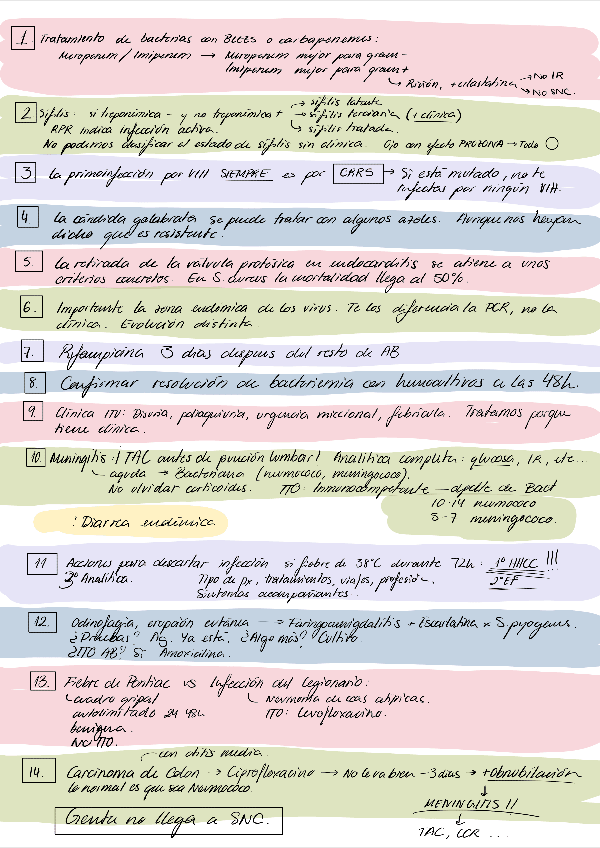 1. Tratamiento de bacterias con BLEES o carbapenemes:
Meropenem / Imipenem → Meropenem mejor para gram-
Imipenem mejor para gram+
↳ Riñón, + cilastatina → No IR
→ No SNC.
2 Sífilis: si treponémica - y no treponémica + → sífilis latente
→ sífilis terciaria (+ clínica)
RPR indica infección activa. ↳ sífilis tratada.
No podemos clasificar el estado de sífilis sin clínica. Ojo con efecto PROZONA → Todo ◯
3 La primoinfección por VIH SIEMPRE es por CKR5 → Si está mutado, no te
infectas por ningún VIH.
4. La cándida galabrata se puede tratar con algunos azoles. Aunque nos hayan
dicho que es resistente.
5. La retirada de la válvula protésica en endocarditis se atiene a unos
criterios concretos. En S. aureus la mortalidad llega al 50%.
6. Importante la zona endémica de los virus. Te los diferencia la PCR, no la
clínica. Evolución distinta
7. Rifampicina 3 días despues del resto de AB
8. Confirmar resolución de bacteriemia con hemocultivos a las 48h.
9. Clínica ITU: Disuria, polaquiuria, urgencia miccional, febrícula. Tratamos porque
tiene clínica.
10. Meningitis: ¡TAC antes de punción lumbar! Analítica completa: glucosa, IR, etc...
↳ aguda → Bacteriana (neumococo, meningococo).
No olvidar corticoides. TTO: Inmunocompetente — depende de Bact
10-14 neumococo
5-7 meningococo.
! Diarrea endémica.
11 Acciones para descartar infección si fiebre de 38°C durante 72h: 1º HHCC !!!
3º Analítica. Tipo de px, tratamientos, viajes, profesión. 2º EF
Síntomas acompañantes.
12. Odinofagia, erupción cutánea → Faringoamigdalitis + Escarlatina x S. pyogenes.
¿Pruebas? Ag. Ya está, ¿Algo más? Cultivo
¿TTO AB? Sí Amoxicilina.
13. Fiebre de Pontiac vs Infección del legionario:
↳ cuadro gripal ↳ Neumonía de caas atípicas.
autolimitado 24 48h TTO: Levofloxacino.
benigna.
No TTO.
con otitis media.
14. Carcinoma de Colon → Ciprofloxacino → No le va bien - 3 días → + Obnubilación
lo normal es que sea Neumococo. ↓
MENINGITIS !!
↓
Genta no llega a SNC. TAC, LCR ...